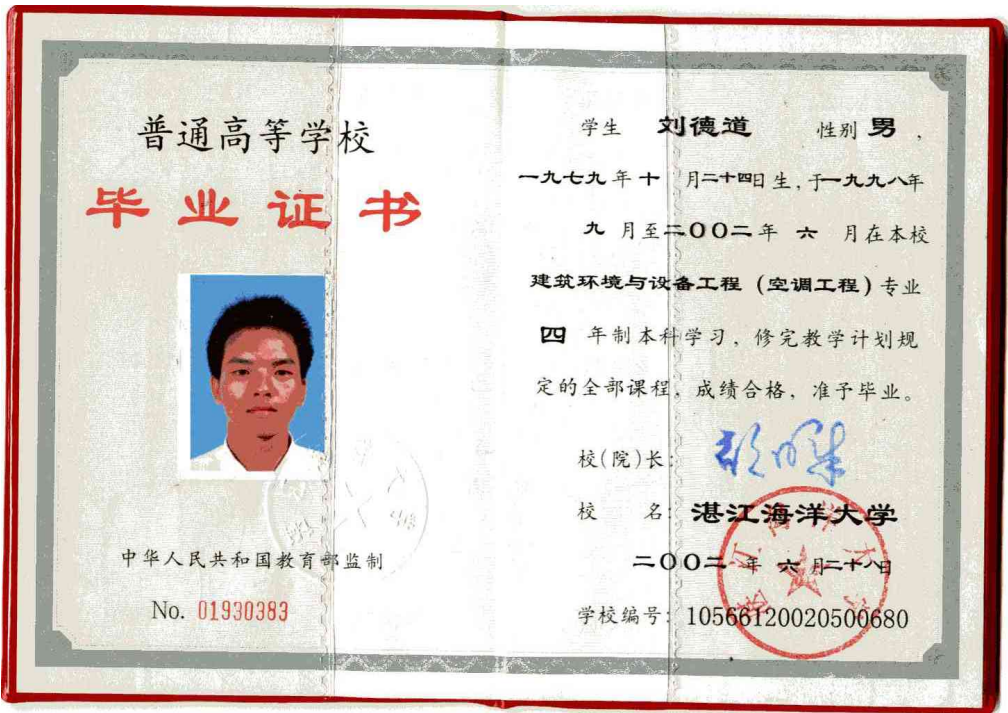 普通高等学校
毕业证书
中华人民共和国教育部监制
No. 01930383
学生 刘德道 性别 男，
一九七九年十 月二十四日生，于一九九八年
九 月至二〇〇二年 六 月在本校
建筑环境与设备工程（空调工程）专业
四 年制本科学习，修完教学计划规
定的全部课程，成绩合格，准予毕业。
校(院)长：
校 名：湛江海洋大学
二〇〇二 年 六 月二十八日
学校编号：10566120020500680
湛江海洋大学